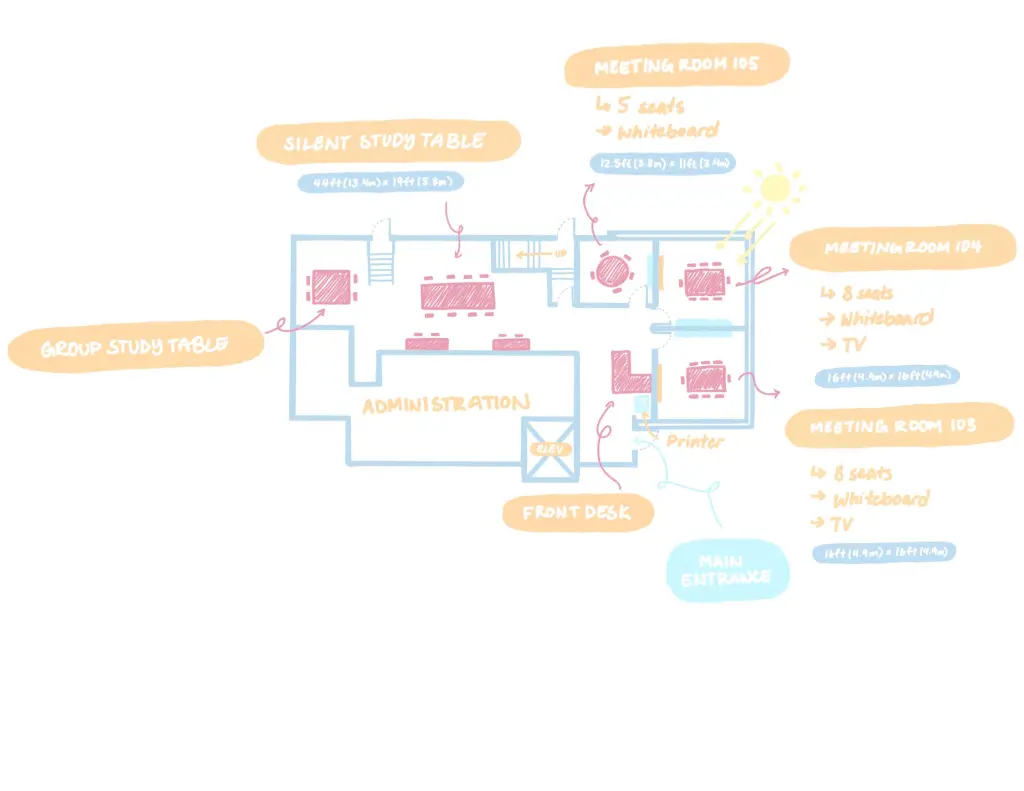 MEETING ROOM 105
↳ 5 seats
→ Whiteboard
12.5ft(3.8m) × 11ft(3.4m)
SILENT STUDY TABLE
44ft(13.4m) × 19ft(5.8m)
UP
MEETING ROOM 104
↳ 8 seats
→ Whiteboard
→ TV
16ft(4.9m) × 16ft(4.9m)
GROUP STUDY TABLE
ADMINISTRATION
ELEV
Printer
MEETING ROOM 103
↳ 8 seats
→ Whiteboard
→ TV
16ft(4.9m) × 16ft(4.9m)
FRONT DESK
MAIN
ENTRANCE